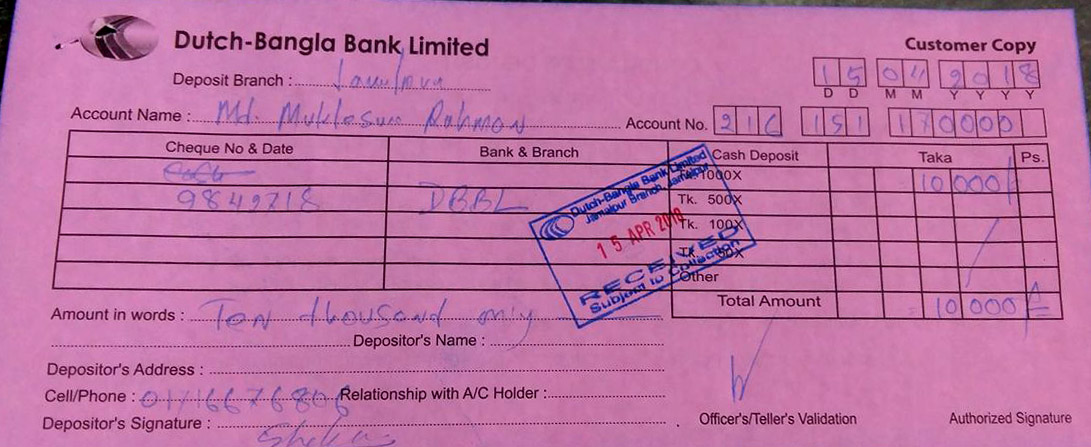 Dutch-Bangla Bank Limited
Customer Copy
Deposit Branch :
15 04 2018
D D M M Y Y Y Y
Account Name : Md. Rahman Account No. 216 151 170000
Cheque No & Date Bank & Branch Cash Deposit Taka Ps.
Tk. 1000X 10 000/
9849718 DBBL Tk. 500X
Tk. 100X
Tk. 50X
Other
Dutch-Bangla Bank Limited
Jamalpur Branch, Jamalpur
15 APR 2018
RECEIVED
Subject to Collection
Total Amount 10 000/=
Amount in words : Ten thousand only
Depositor's Name :
Depositor's Address :
Cell/Phone : 01716676806 Relationship with A/C Holder :
Depositor's Signature :
Officer's/Teller's Validation Authorized Signature